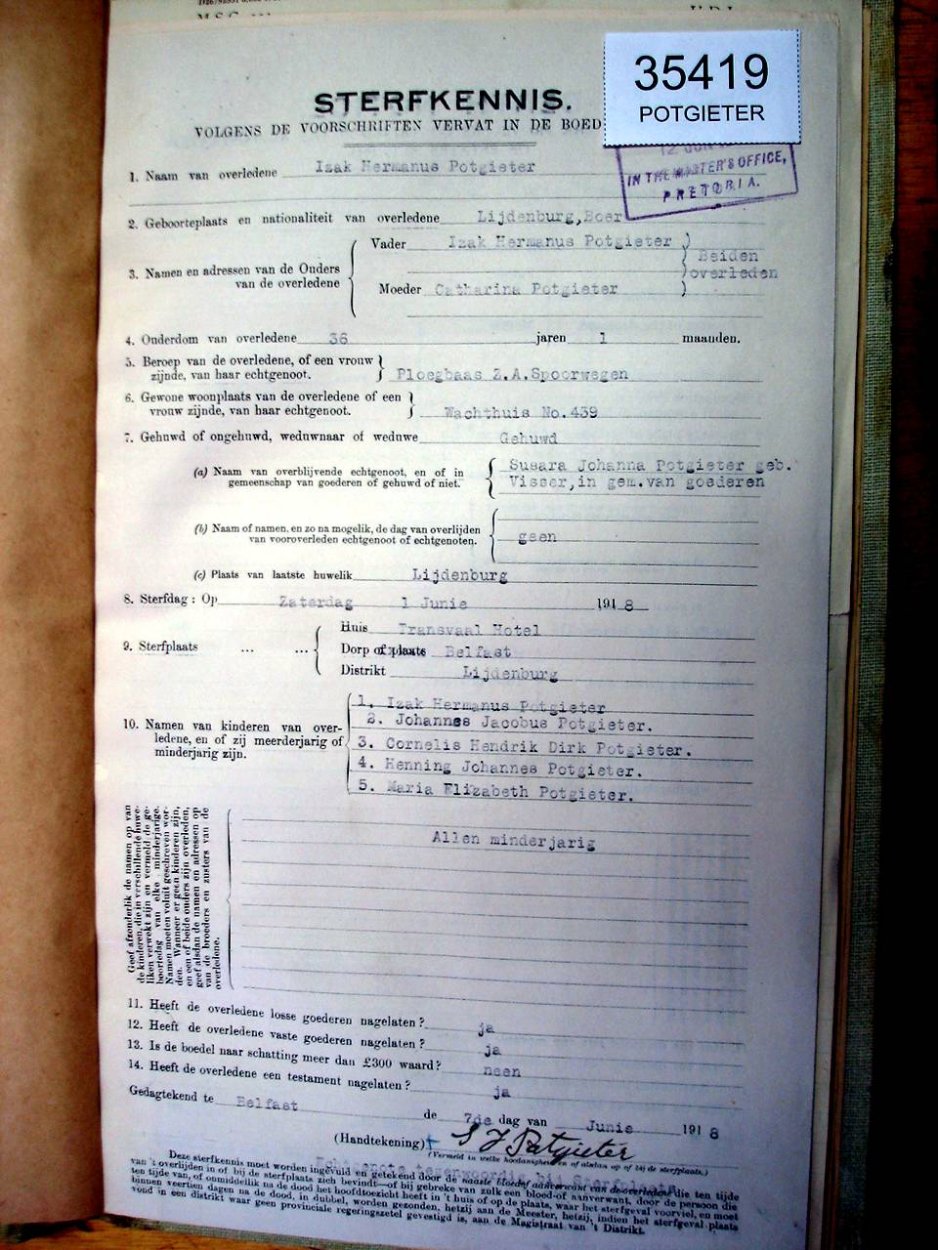 35419
POTGIETER
STERFKENNIS.
VOLGENS DE VOORSCHRIFTEN VERVAT IN DE BOED
IN THE MASTER'S OFFICE,
PRETORIA.
1. Naam van overledene Izak Hermanus Potgieter
2. Geboorteplaats en nationaliteit van overledene Lijdenburg,Boer
3. Namen en adressen van de Ouders van de overledene
Vader Izak Hermanus Potgieter )
Beiden overleden
Moeder Catharina Potgieter )
4. Onderdom van overledene 36 jaren 1 maanden.
5. Beroep van de overledene, of een vrouw
zijnde, van haar echtgenoot. Ploegbaas Z.A.Spoorwegen
6. Gewone woonplaats van de overledene of een
vrouw zijnde, van haar echtgenoot. Wachthuis No.439
7. Gehuwd of ongehuwd, weduwnaar of weduwe Gehuwd
(a) Naam van overblijvende echtgenoot, en of in
gemeenschap van goederen of gehuwd of niet.
Susara Johanna Potgieter geb.
Visser,in gem.van goederen
(b) Naam of namen, en zo na mogelik, de dag van overlijden
van vooroverleden echtgenoot of echtgenoten. geen
(c) Plaats van laatste huwelik Lijdenburg
8. Sterfdag: Op Zaterdag 1 Junie 1918
9. Sterfplaats ... ...
Huis Transvaal Hotel
Dorp of plaats Belfast
Distrikt Lijdenburg
10. Namen van kinderen van over-
ledene, en of zij meerderjarig of
minderjarig zijn.
1. Izak Hermanus Potgieter
2. Johannes Jacobus Potgieter.
3. Cornelis Hendrik Dirk Potgieter.
4. Henning Johannes Potgieter.
5. Maria Elizabeth Potgieter.
Geef afzonderlik de namen op van
de kinderen, die in verschillende huwe-
liken verwekt zijn en vermeld de ge-
boortedag van elke minderjarige.
Namen moeten voluit geschreven wor-
den. Wanneer er geen kinderen zijn,
en een of beide ouders zijn overleden,
geef alsdan de namen en adressen op
van de broeders en zusters van de
overledene.
Allen minderjarig
11. Heeft de overledene losse goederen nagelaten? ja
12. Heeft de overledene vaste goederen nagelaten? ja
13. Is de boedel naar schatting meer dan £300 waard? neen
14. Heeft de overledene een testament nagelaten? ja
Gedagtekend te Belfast de 7de dag van Junie 1918
(Handtekening) S J Potgieter
(Vermeld in welke hoedanigheid en of aldan op of bij de sterfplaats.)
Deze sterfkennis moet worden ingevuld en getekend door de naaste bloed of aanverwant van de overledene die ten tijde
van 't overlijden in of bij de sterfplaats zich bevindt—of bij gebreke van zulk een bloed-of aanverwant, door de persoon die
ten tijde van, of onmiddellik na de dood het hoofdtoezicht heeft in 't huis of op de plaats, waar het sterfgeval voorviel, en moet
binnen veertien dagen na de dood, in dubbel, worden gezonden, hetzij aan de Meester, hetzij, indien het sterfgeval plaats
vond in een distrikt waar geen provinciale regeringszetel gevestigd is, aan de Magistraat van 't Distrikt.